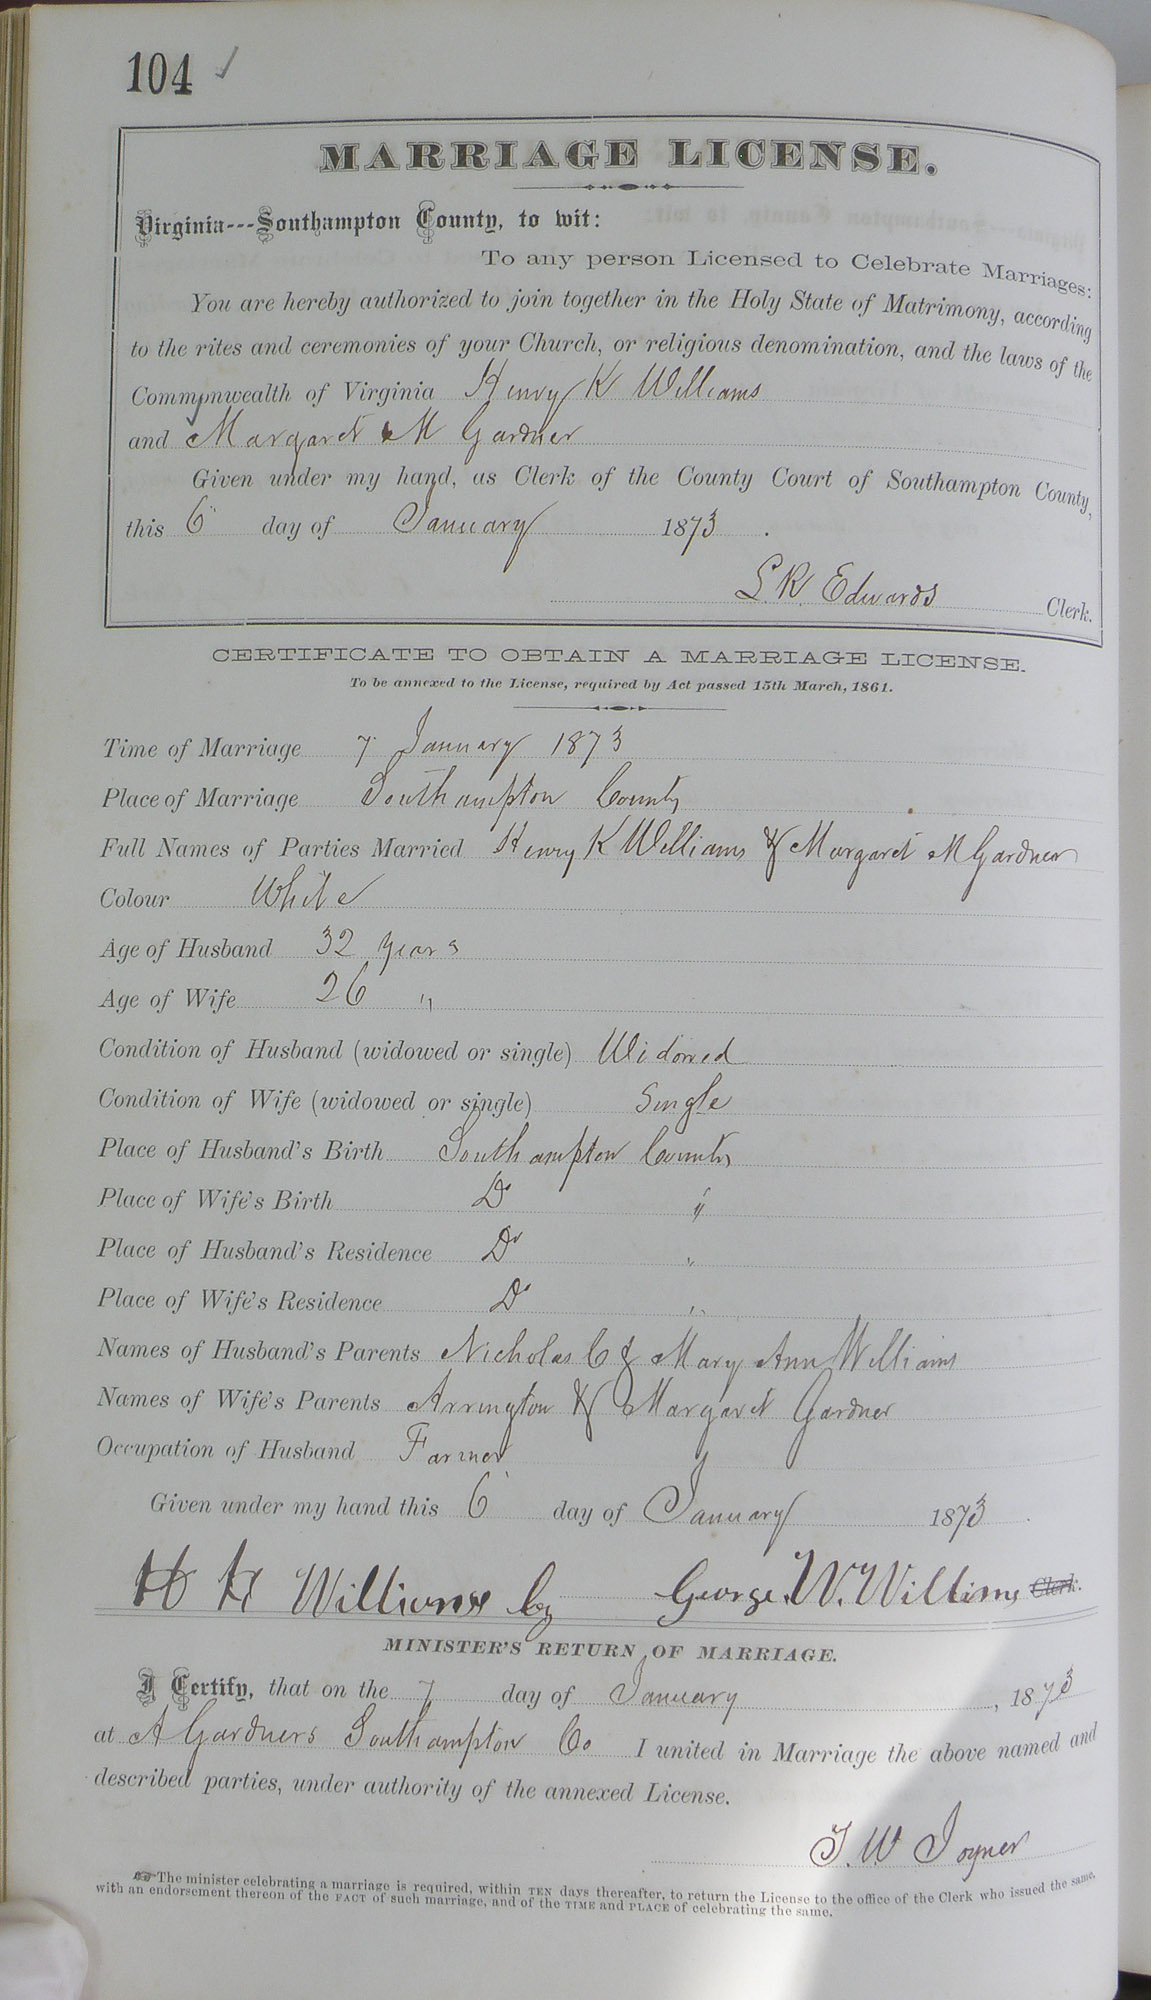 104 ✓
MARRIAGE LICENSE.
Virginia---Southampton County, to wit:
To any person Licensed to Celebrate Marriages:
You are hereby authorized to join together in the Holy State of Matrimony, according
to the rites and ceremonies of your Church, or religious denomination, and the laws of the
Commonwealth of Virginia Henry K Williams
and Margaret M Gardner
Given under my hand, as Clerk of the County Court of Southampton County,
this 6 day of January 1873.
L. R. Edwards Clerk.
CERTIFICATE TO OBTAIN A MARRIAGE LICENSE.
To be annexed to the License, required by Act passed 15th March, 1861.
Time of Marriage 7 January 1873
Place of Marriage Southampton County
Full Names of Parties Married Henry K Williams & Margaret M Gardner
Colour White
Age of Husband 32 years
Age of Wife 26 "
Condition of Husband (widowed or single) Widowed
Condition of Wife (widowed or single) Single
Place of Husband's Birth Southampton County
Place of Wife's Birth Do "
Place of Husband's Residence Do "
Place of Wife's Residence Do "
Names of Husband's Parents Nicholas C & Mary Ann Williams
Names of Wife's Parents Arrington & Margaret Gardner
Occupation of Husband Farmer
Given under my hand this 6 day of January 1873.
H K Williams by George. W. Williams Clerk.
MINISTER'S RETURN OF MARRIAGE.
I Certify, that on the 7 day of January, 1873
at A Gardners Southampton Co I united in Marriage the above named and
described parties, under authority of the annexed License.
J. W Joyner
The minister celebrating a marriage is required, within TEN days thereafter, to return the License to the office of the Clerk who issued the same,
with an endorsement thereon of the FACT of such marriage, and of the TIME and PLACE of celebrating the same.